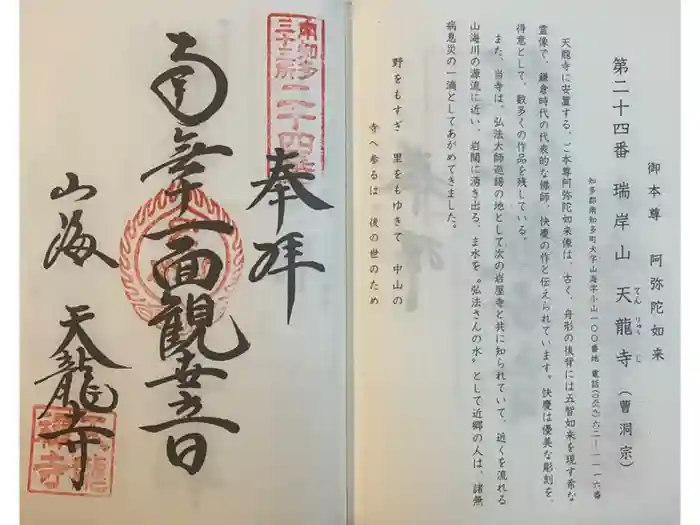 御本尊 阿弥陀如来
第二十四番 瑞岸山 天龍寺(曹洞宗)
てんりゅうじ
知多郡南知多町大字山海字小山一〇〇番地 電話(〇五六九)六二ー一一一六番
天龍寺に安置する、ご本尊阿弥陀如来像は、古く、舟形の後背には五智如来を現す希な
霊像で、鎌倉時代の代表的な佛師、快慶の作と伝えられています。快慶は優美な彫刻を、
得意として、数多くの作品を残している。
また、当寺は、弘法大師巡錫の地として次の岩屋寺と共に知られていて、近くを流れる
山海川の源流に近い、岩間に湧き出る、ま水を〝弘法さんの水〟として近郷の人は、諸無
病息災の一滴としてあがめてきました。
野をもすぎ 里をもゆきて 中山の
寺へ参るは 後の世のため
南知多
三十三所
二十四番
奉拝
南無十一面観世音
山海 天龍寺